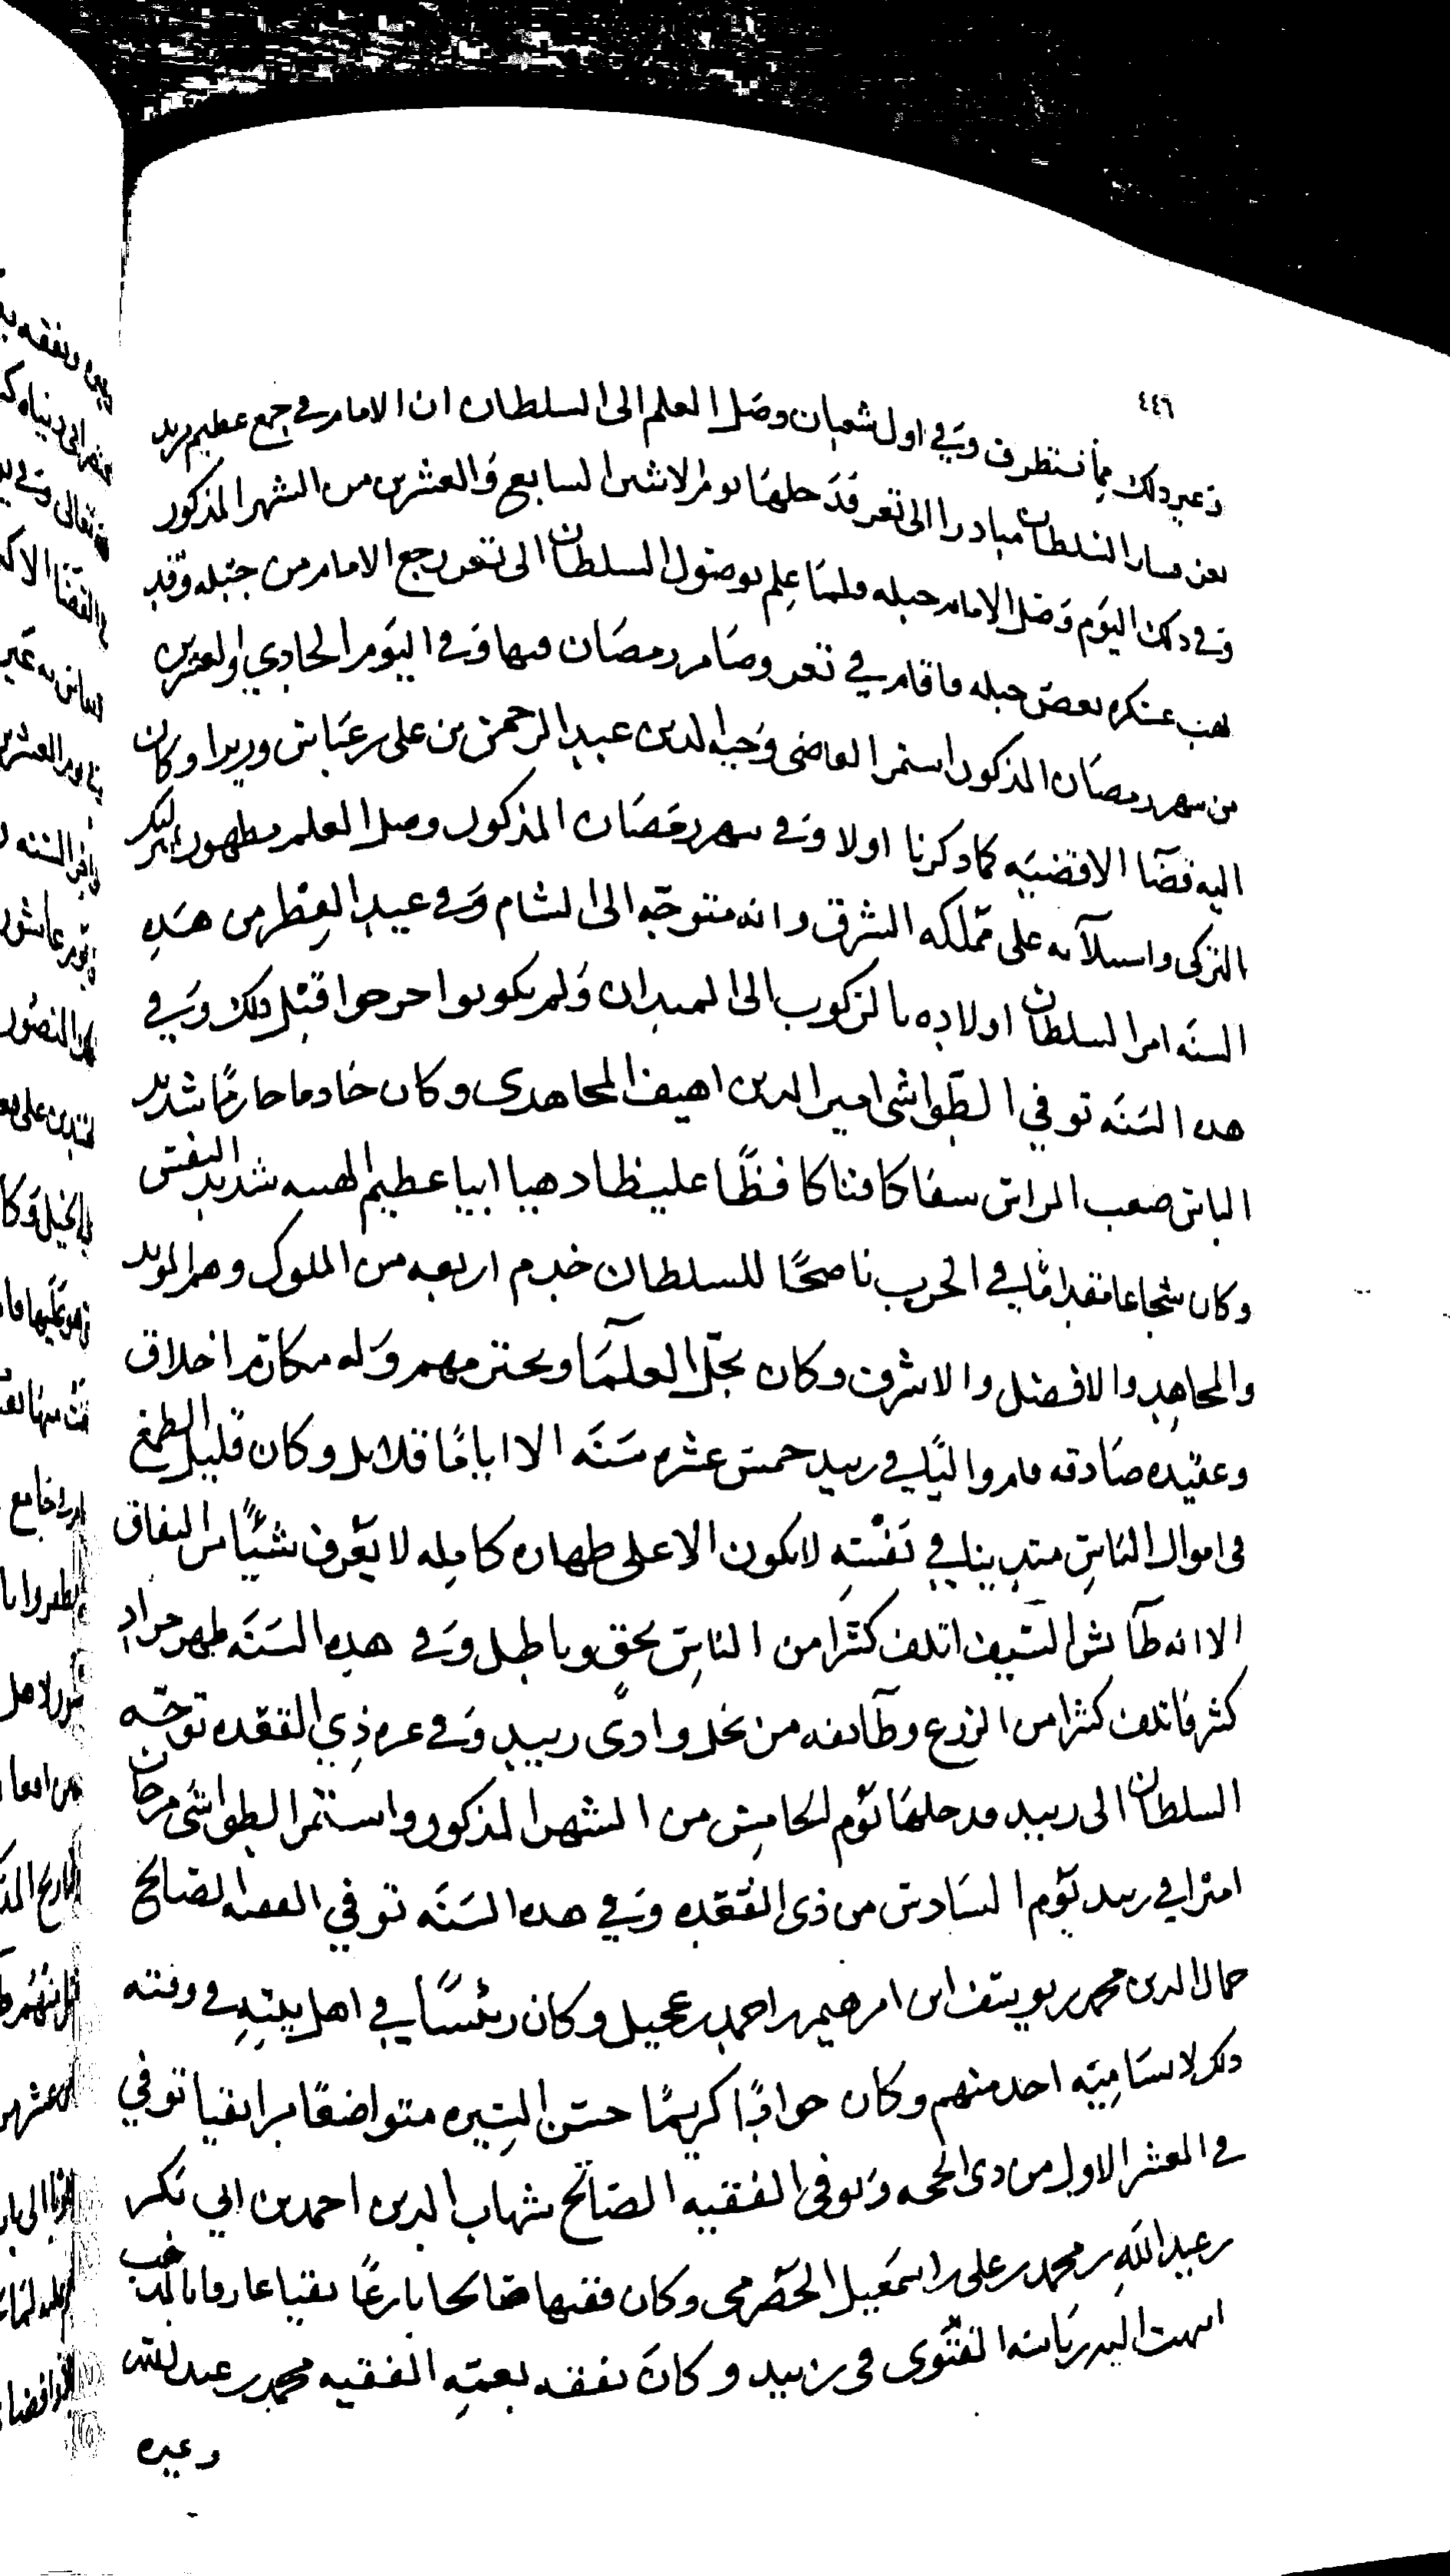 ٤٤٦
وغير ذلك مما يستظرف وفي اول شعبان وصل العلم الى السلطان ان الامام في جمع عظيم يريد
تعز فسار السلطان مبادرا الى تعز فدخلها يوم الاثنين السابع والعشرين من الشهر المذكور
وفي ذلك اليوم وصل الامام جبله فلما علم بوصول السلطان الى تعز رجع الامام من جبله وقد
نهب عسكره بعض جبله فاقام في تعز وصام رمضان فيها وفي اليوم الحادي والعشرين
من شهر رمضان المذكور استمر القاضي وجيه الدين عبد الرحمن بن علي بن عباس وزيرا وكان
اليه قضا الاقضيه كما ذكرنا اولا وفي شهر رمضان المذكور وصل العلم بظهور
التركي واستيلائه على مملكه الشرق وانه متوجه الى الشام وفي عيد الفطر من هذه
السنه امر السلطان اولاده بالركوب الى الميدان ولم يكونوا خرجوا قبل ذلك وفي
هذه السنه توفي الطواشي امير الدين اهيف المجاهدي وكان خادما حازما شديد
الباس صعب المراس سفاكا فتاكا فظا غليظا دهيا ابيا عظيم الهيبه شديد النفس
وكان شجاعا مقداما في الحرب ناصحا للسلطان خدم اربعه من الملوك وهم المويد
والمجاهد والافضل والاشرف وكان يجل العلما ويحترمهم وله مكارم اخلاق
وعقيده صادقه قام واليا في زبيد خمس عشره سنه الا اياما قلائل وكان قليل الطمع
في اموال الناس متدينا في نفسه لا يكون الا على طهاره كامله لا يعرف شيئا من النفاق
الا انه طائش السيف اتلف كثيرا من الناس بحق وباطل وفي هذه السنه ظهر جراد
كثير فاتلف كثيرا من الزرع وطائفه من نخل وادي زبيد وفي غره ذي القعده توجه
السلطان الى زبيد فدخلها يوم الخامس من الشهر المذكور واستمر الطواشي مرجان
اميرا في زبيد يوم السادس من ذي القعده وفي هذه السنه توفي الفقيه الصالح
جمال الدين محمد بن يوسف ابن ابرهيم بن احمد بن عجيل وكان رئيسا في اهل بيته في وقته
ذلك لا يساميه احد منهم وكان جوادا كريما حسن السيره متواضعا برا تقيا توفي
في العشر الاول من ذي الحجه وتوفي الفقيه الصالح شهاب الدين احمد بن ابي بكر
بن عبد الله بن محمد بن علي بن اسمعيل الحضرمي وكان فقيها صالحا بارعا تقيا عارفا بالمذهب
انتهت اليه رياسه الفتوى في زبيد وكان تفقه بعمه الفقيه محمد بن عبد الله
وغيره